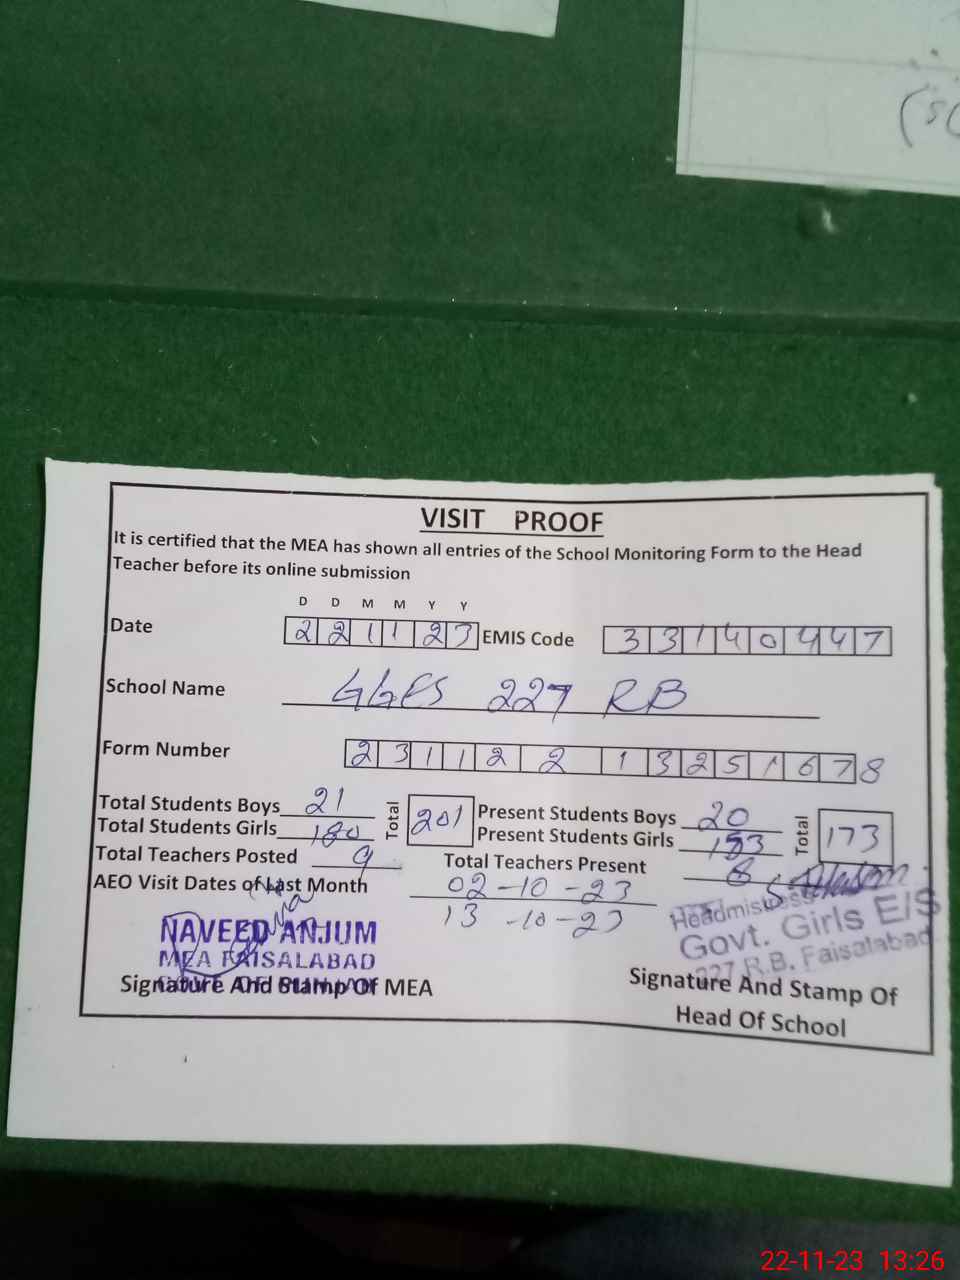 (S
VISIT PROOF
It is certified that the MEA has shown all entries of the School Monitoring Form to the Head
Teacher before its online submission
D D M M Y Y
Date 2 2 1 1 2 3 EMIS Code 3 3 1 4 0 4 4 7
School Name GGES 227 RB
Form Number 2 3 1 1 2 2 1 3 2 5 1 6 7 8
Total Students Boys 21 Total 201 Present Students Boys 20 Total 173
Total Students Girls 180 Present Students Girls 153
Total Teachers Posted 9 Total Teachers Present 8
AEO Visit Dates of Last Month 02-10-23
13-10-23
NAVEED ANJUM
MEA FAISALABAD
Signature And Stamp Of MEA
Headmistress
Govt. Girls E/S
227 R.B. Faisalabad
Signature And Stamp Of
Head Of School
22-11-23 13:26